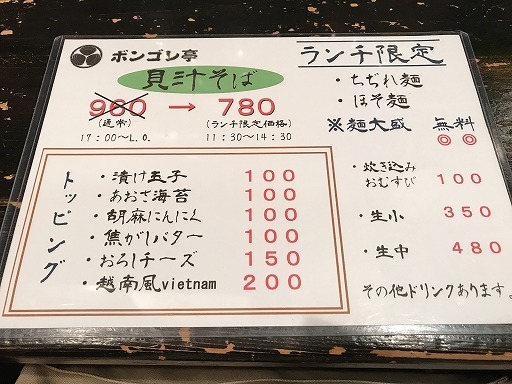 ボンゴシ亭
貝汁そば
980 → 780
(通常) (ランチ限定価格)
17:00〜L.O. 11:30〜14:30
トッピング
・漬け玉子 100
・あおさ海苔 100
・胡麻にんにく 100
・焦がしバター 100
・おろしチーズ 150
・越南風vietnam 200
ランチ限定
・ちぢれ麺
・ほそ麺
※麺大盛 無料
◎◎
・炊き込みおむすび 100
・生小 350
・生中 480
その他ドリンクあります。